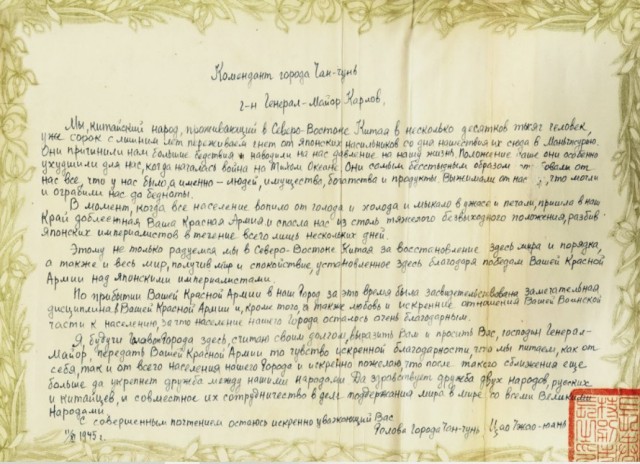 Комендант города Чан-чунь
г-н Генерал-Майор Карлов.
Мы, китайский народ, проживающий в Северо-Востоке Китая в несколько десятков тысяч человек,
уже сорок с лишним лет переживаем гнет от Японских насильников со дня нашествия их сюда в Маньчжурию.
Они причинили нам большие бедствия и наводили на нас давление на нашу жизнь. Положение наше они особенно
ухудшили для нас, когда началась война на Тихом Океане. Они самым бесстыдным образом от
нас все, что у нас было, а именно – людей, имущество, богатства и продукты. Выжимали от нас что могли
и ограбили нас до беднаты.
В момент, когда все население вопило от голода и холода и мыкало в ужасе и печали, пришла в наш
Край доблестная Ваша Красная Армия и спасла нас из столь тяжелого безвыходного положения, разбив
Японских империалистов в течение всего лишь нескольких дней.
Этому не только радуемся мы в Северо-Востоке Китая за восстановление здесь мира и порядка,
а также и весь мир, получив мир и спокойствие, установленное здесь благодаря победам Вашей Красной
Армии над Японскими империалистами.
По прибытии Вашей Красной Армии в наш Город за это время была засвидетельствована замечательная
дисциплина в Вашей Красной Армии и, кроме того, а также любовь и искренние отношения Вашей Воинской
части к населению, за что население нашего Города осталось очень благодарным.
Я, будучи Головой Города здесь, считаю своим долгом, выразить Вам и просить Вас, господин Генерал-
Майор, передать Вашей Красной Армии то чувство искренной благодарности, что мы питаем, как от
себя, так и от всего населения нашего Города и искренно пожелаю, что после такого сближения еще
больше да укрепнет дружба между нашими народами. Да здравствует дружба двух народов, русских
и китайцев, и совместное их сотрудничество в деле поддержания мира в мире со всеми Великими
Народами.
С совершенным почтением остаюсь искренно уважающий Вас
1945 г. Голова Города Чан-чунь Цао Чжао-юань